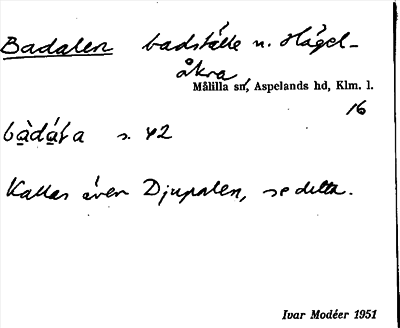 Badalen badställe n. Hagel-
åkra
Målilla sn, Aspelands hd, Klm. l.
16
s. 42
Kallas även Djupalen, se detta.
Ivar Modéer 1951